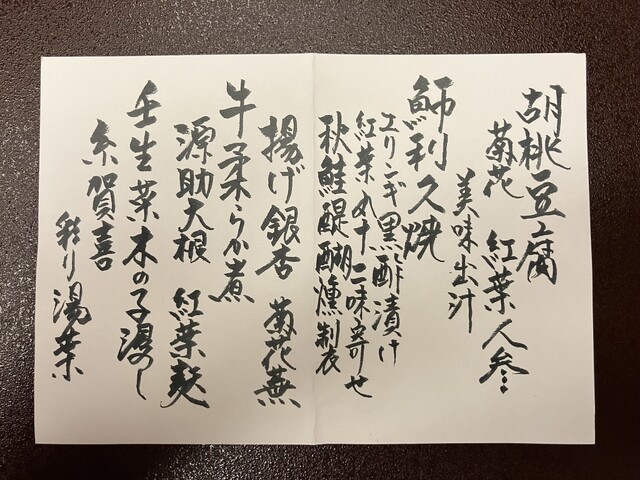 胡桃豆腐
菊花 紅葉人参
美味出汁
鰤利久焼
エリンギ黒酢漬け
紅葉丸十二味寄せ
秋鮭醍醐燻製
揚げ銀杏 菊花蕪
牛柔らか煮
源助大根 紅葉麩
壬生菜木の子浸し
糸賀喜
彩り湯葉